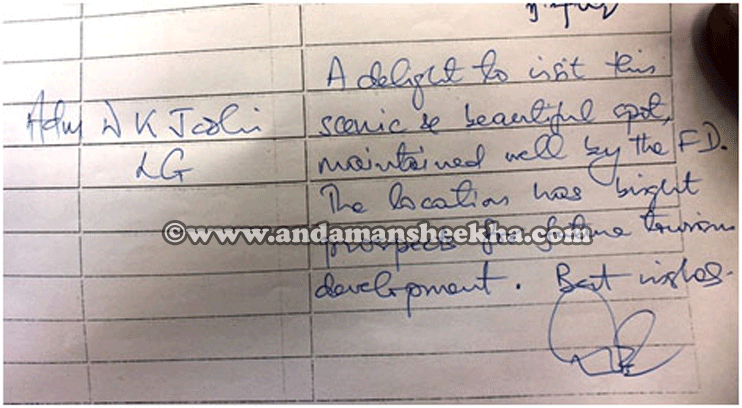 Adm D K Joshi
LG
A delight to visit this
scenic & beautiful spot,
maintained well by the FD.
The location has bright
prospects for future tourism
development. Best wishes.
©www.andamansheekha.com